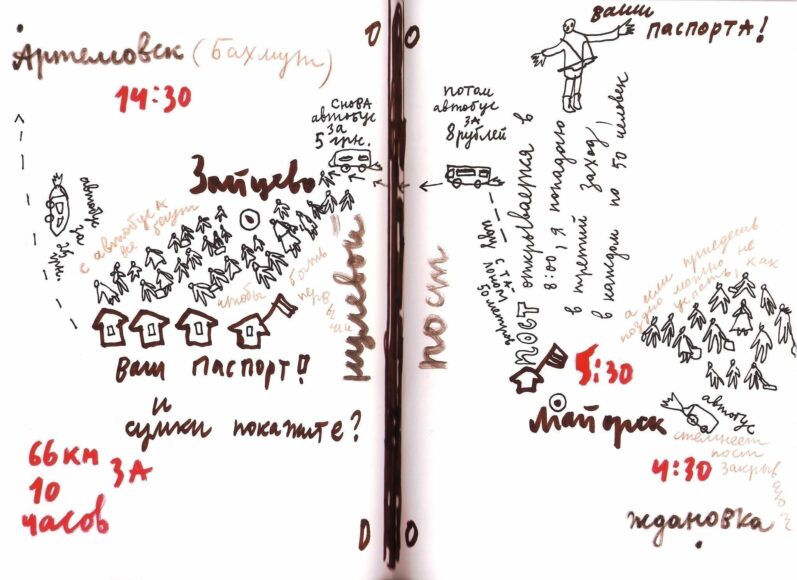 Артемовск (Бахмут)
14:30
снова
автобус
за
5 грн.
Зайцево
автобус
за 25
грн.
с автобуса
все бегут
чтобы быть
перв
ваш паспорт!!
и
сумки покажите?
66 км
за
10
часов
нулевой
пост
0 0
0 0
ваши
паспорта!
потом
автобус
за
8 рублей
пост открывается в
8:00, я попадаю
в третий заход,
в каждом по 50 человек
50 метров
5:30
Майорск
а если приедешь
поздно можно не
успеть, как
автобус
стемнеет
пост
закрыв
4:30
Ждановка